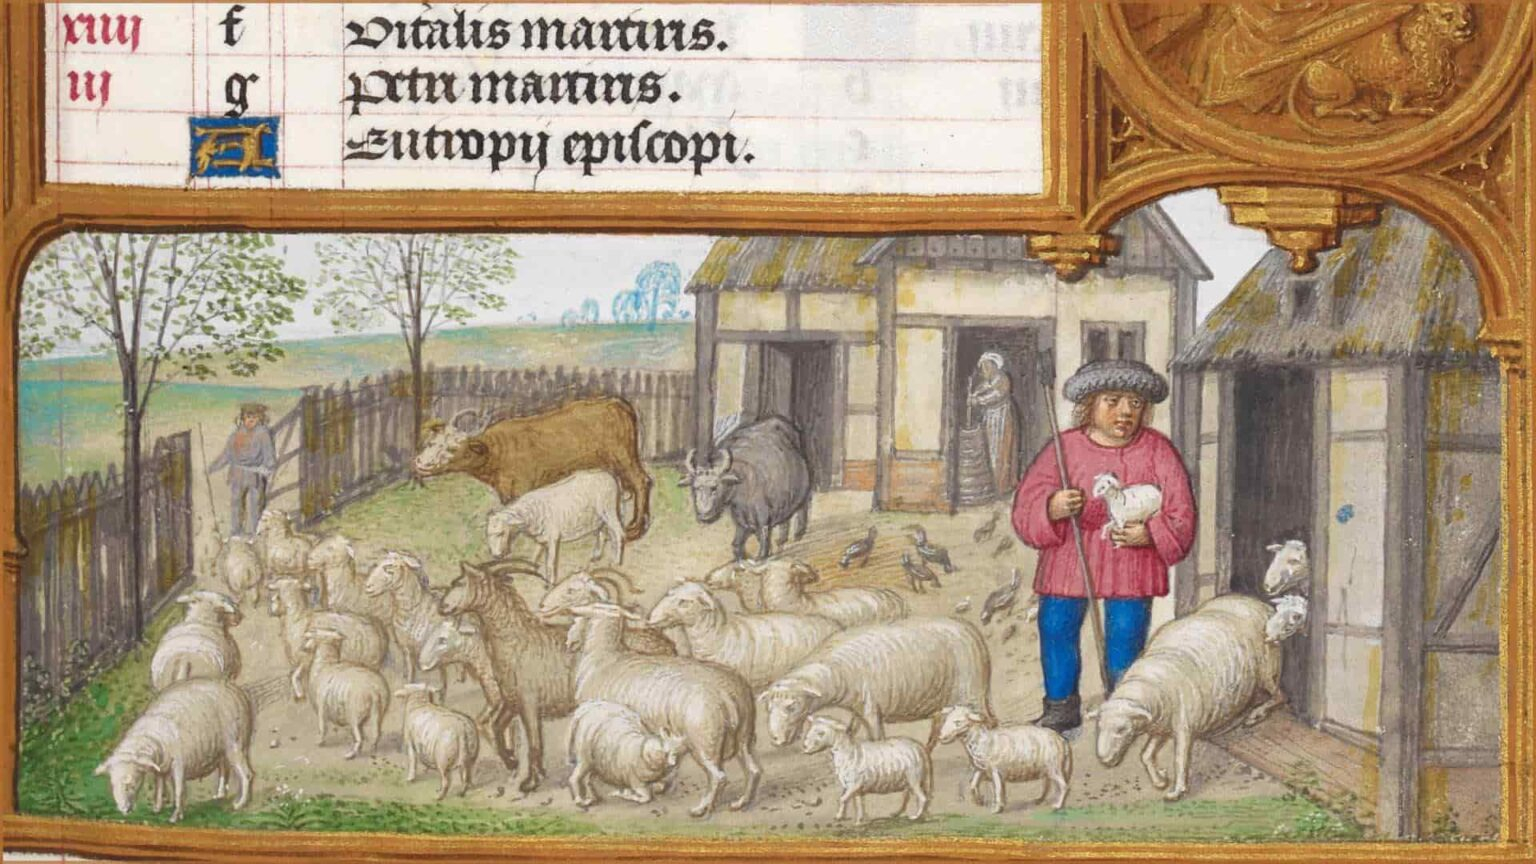 xiiij f Vitalis martiris.
iij g Petri martiris.
A Eutropij episcopi.